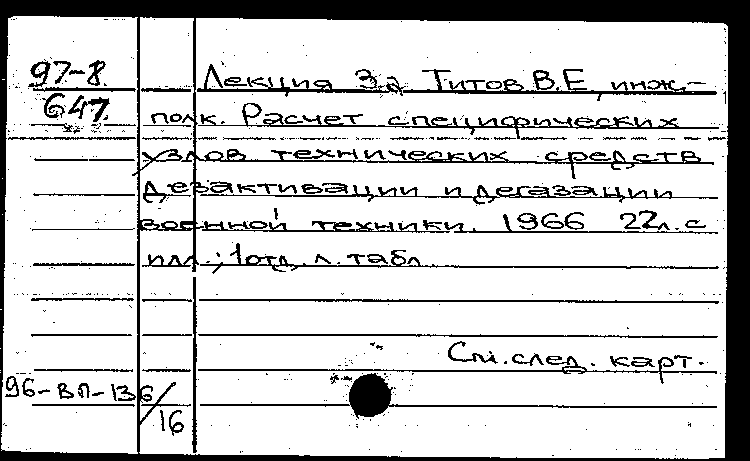 97-8 Лекция 3а Титов В.Е., инж.-
647 полк. Расчет специфических
узлов технических средств
дезактивации и дегазации
военной техники. 1966 22л. с
илл.; 1отд. л. табл.
См. след. карт.
96-ВП-136/
16